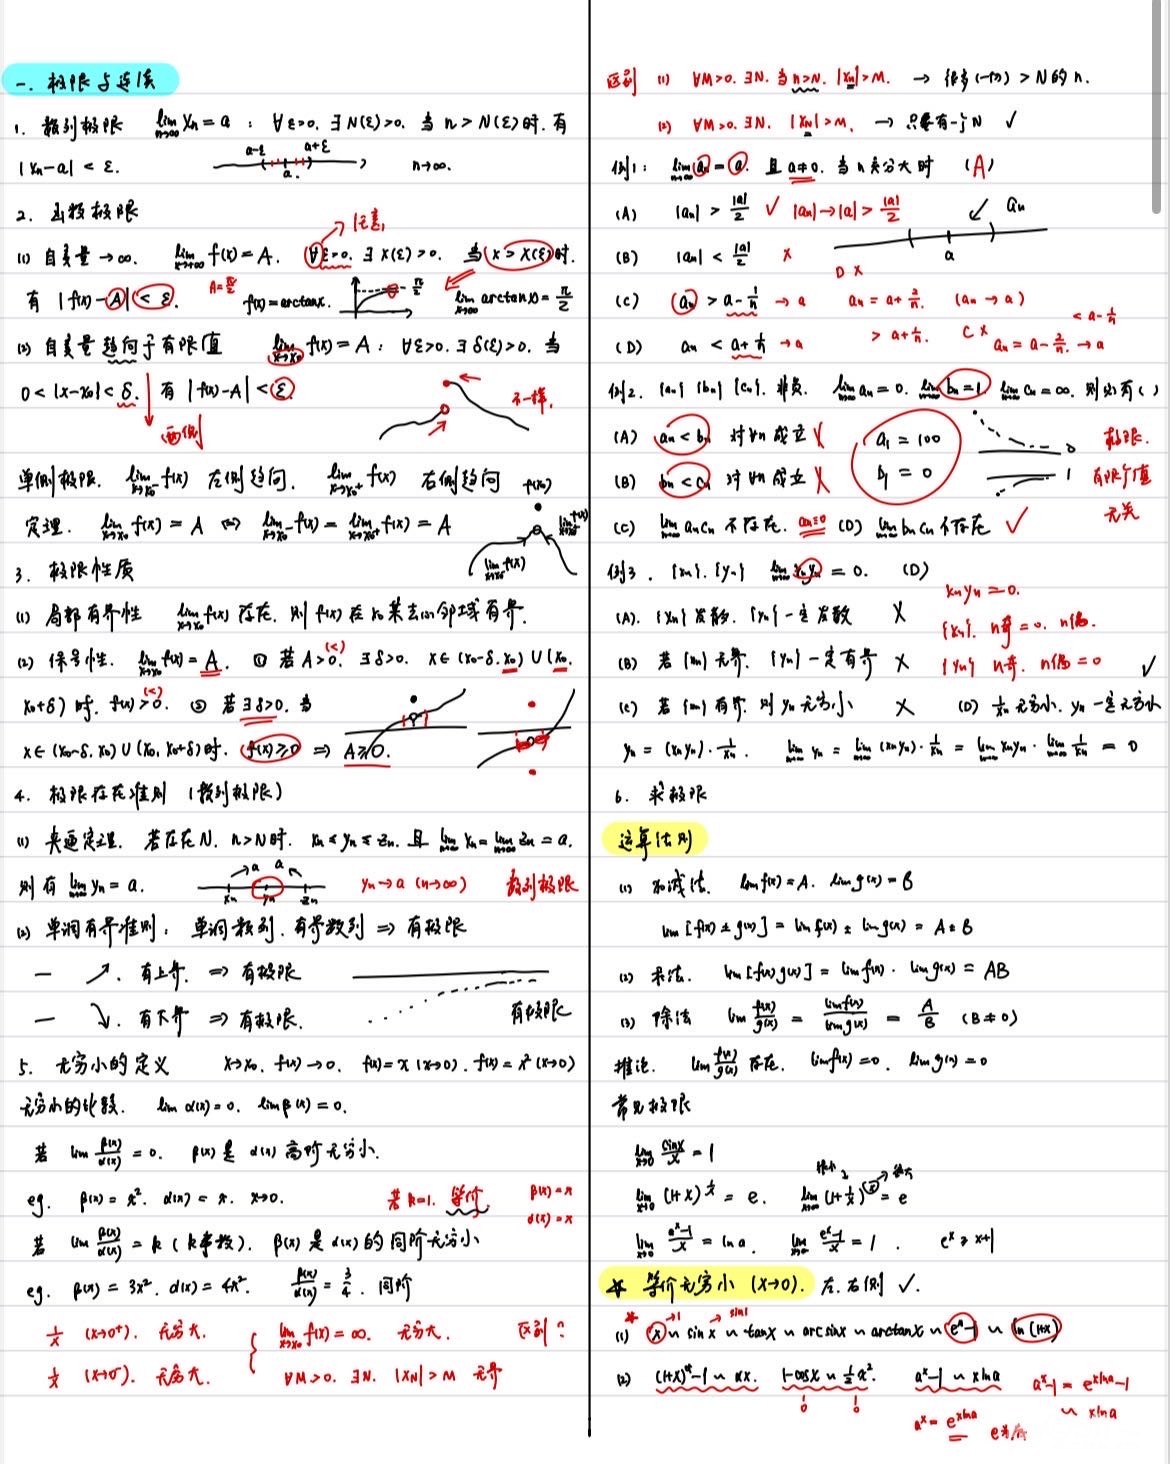 一. 极限与连续
1. 数列极限 lim_{n→∞} xn = a : ∀ε>0. ∃N(ε)>0. 当 n>N(ε)时. 有
|xn-a| < ε. a-ε a+ε a. n→∞.
2. 函数极限
任意
(1) 自变量→∞. lim_{x→+∞} f(x)=A. ∀ε>0. ∃X(ε)>0. 当 x>X(ε)时.
有 |f(x)-A|<ε. A=π/2 f(x)=arctanx. π/2 lim_{x→∞} arctanx=π/2
(2) 自变量趋向于有限值 lim_{x→x0} f(x)=A: ∀ε>0. ∃δ(ε)>0. 当
0<|x-x0|<δ. 有 |f(x)-A|<ε. 不一样.
两侧
单侧极限. lim_{x→x0-} f(x) 左侧趋向. lim_{x→x0+} f(x) 右侧趋向 f(x0)
定理. lim_{x→x0} f(x)=A ⇔ lim_{x→x0-} f(x)=lim_{x→x0+} f(x)=A
lim_{x→x0-} f(x)
3. 极限性质
(1) 局部有界性 lim_{x→x0} f(x)存在. 则 f(x) 在 x0 某去心邻域有界.
(2) 保号性. lim_{x→x0} f(x)=A. ① 若 A>0. (<) ∃δ>0. x∈(x0-δ.x0)∪(x0.
x0+δ)时. f(x)>0. (<) ② 若∃δ>0. 当
x∈(x0-δ.x0)∪(x0.x0+δ)时. f(x)≥0 ⇒ A≥0.
4. 极限存在准则 (数列极限)
(1) 夹逼定理. 若存在N. n>N时. xn≤yn≤zn. 且 lim_{n→∞} xn=lim_{n→∞} zn=a.
则有 lim_{n→∞} yn=a. →a a← xn yn zn yn→a (n→∞) 数列极限
(2) 单调有界准则: 单调数列.有界数列 ⇒ 有极限
— ↗. 有上界. ⇒ 有极限
— ↘. 有下界 ⇒ 有极限. 有极限
5. 无穷小的定义 x→x0. f(x)→0. f(x)=x (x→0). f(x)=x² (x→0)
无穷小的比较. lim α(x)=0. lim β(x)=0.
若 lim β(x)/α(x)=0. β(x)是 α(x) 高阶无穷小.
eg. β(x)=x². α(x)=x. x→0. 若k=1. 等价 β(x)=x
α(x)=x
若 lim β(x)/α(x)=k (k常数). β(x)是α(x)的同阶无穷小
eg. β(x)=3x². α(x)=4x². β(x)/α(x)=3/4. 同阶
1/x (x→0⁺). 无穷大. { lim_{x→x0} f(x)=∞. 无穷大. 区别?
1/x (x→0⁻). 无穷大. ∀M>0. ∃N. |xN|>M 无界
区别 (1) ∀M>0. ∃N. 当n>N. |xn|>M. → 很多(一切)>N的n.
(2) ∀M>0. ∃N. |xN|>M. → 只要有一个N ✓
例1: lim_{n→∞} an=a. 且 a≠0. 当n充分大时 (A)
(A) |an|>|a|/2 ✓ |an|→|a|>|a|/2 an
(B) |an|<|a|/2 × a
D ×
(C) an>a-1/n →a an=a+2/n. (an→a)
>a+1/n. C× <a-1/n
(D) an<a+1/n →a an=a-2/n. →a
例2. {an}{bn}{cn}.非负. lim_{n→∞} an=0. lim_{n→∞} bn=1. lim_{n→∞} cn=∞. 则必有( )
(A) an<bn 对∀n成立 ╳ a1=100 0 极限.
(B) bn<cn 对∀n成立 ╳ b1=0 1 有限个值
无关
(C) lim_{n→∞} ancn 不存在. an≡0 (D) lim_{n→∞} bncn不存在 ✓
例3. {xn}.{yn} lim_{n→∞} xnyn=0. (D)
xnyn=0.
(A). {xn}发散. {yn}一定发散 ╳ {xn}. n奇=0. n偶.
(B) 若{xn}无界. {yn}一定有界 ╳ {yn} n奇. n偶=0 ✓
(C) 若{xn}有界. 则 yn 无穷小 ╳ (D) 1/xn无穷小. yn一定无穷小
yn=(xnyn)·1/xn. lim_{n→∞} yn=lim_{n→∞}(xnyn)·1/xn=lim_{n→∞} xnyn·lim_{n→∞} 1/xn=0
6. 求极限
运算法则
(1) 加减法. lim f(x)=A. lim g(x)=B
lim[f(x)±g(x)]=lim f(x)±lim g(x)=A±B
(2) 乘法. lim[f(x)g(x)]=lim f(x)·lim g(x)=AB
(3) 除法 lim f(x)/g(x)=lim f(x)/lim g(x)=A/B (B≠0)
推论. lim f(x)/g(x)存在. lim f(x)=0. lim g(x)=0
常见极限
lim_{x→0} sinx/x=1
lim_{x→0}(1+x)^{1/x}=e. lim_{x→∞}(1+1/x)^x=e
lim_{x→0} (a^x-1)/x=lna. lim_{x→0} (e^x-1)/x=1. e^x≥x+1
☆ 等价无穷小 (x→0). 左.右侧 ✓.
→1 →sin1
(1) * x ~ sinx ~ tanx ~ arcsinx ~ arctanx ~ e^x-1 ~ ln(1+x)
(2) (1+x)^α-1 ~ αx. 1-cosx ~ 1/2x². a^x-1 ~ xlna a^x-1=e^{xlna}-1
0 0 ~ xlna
a^x=e^{xlna}